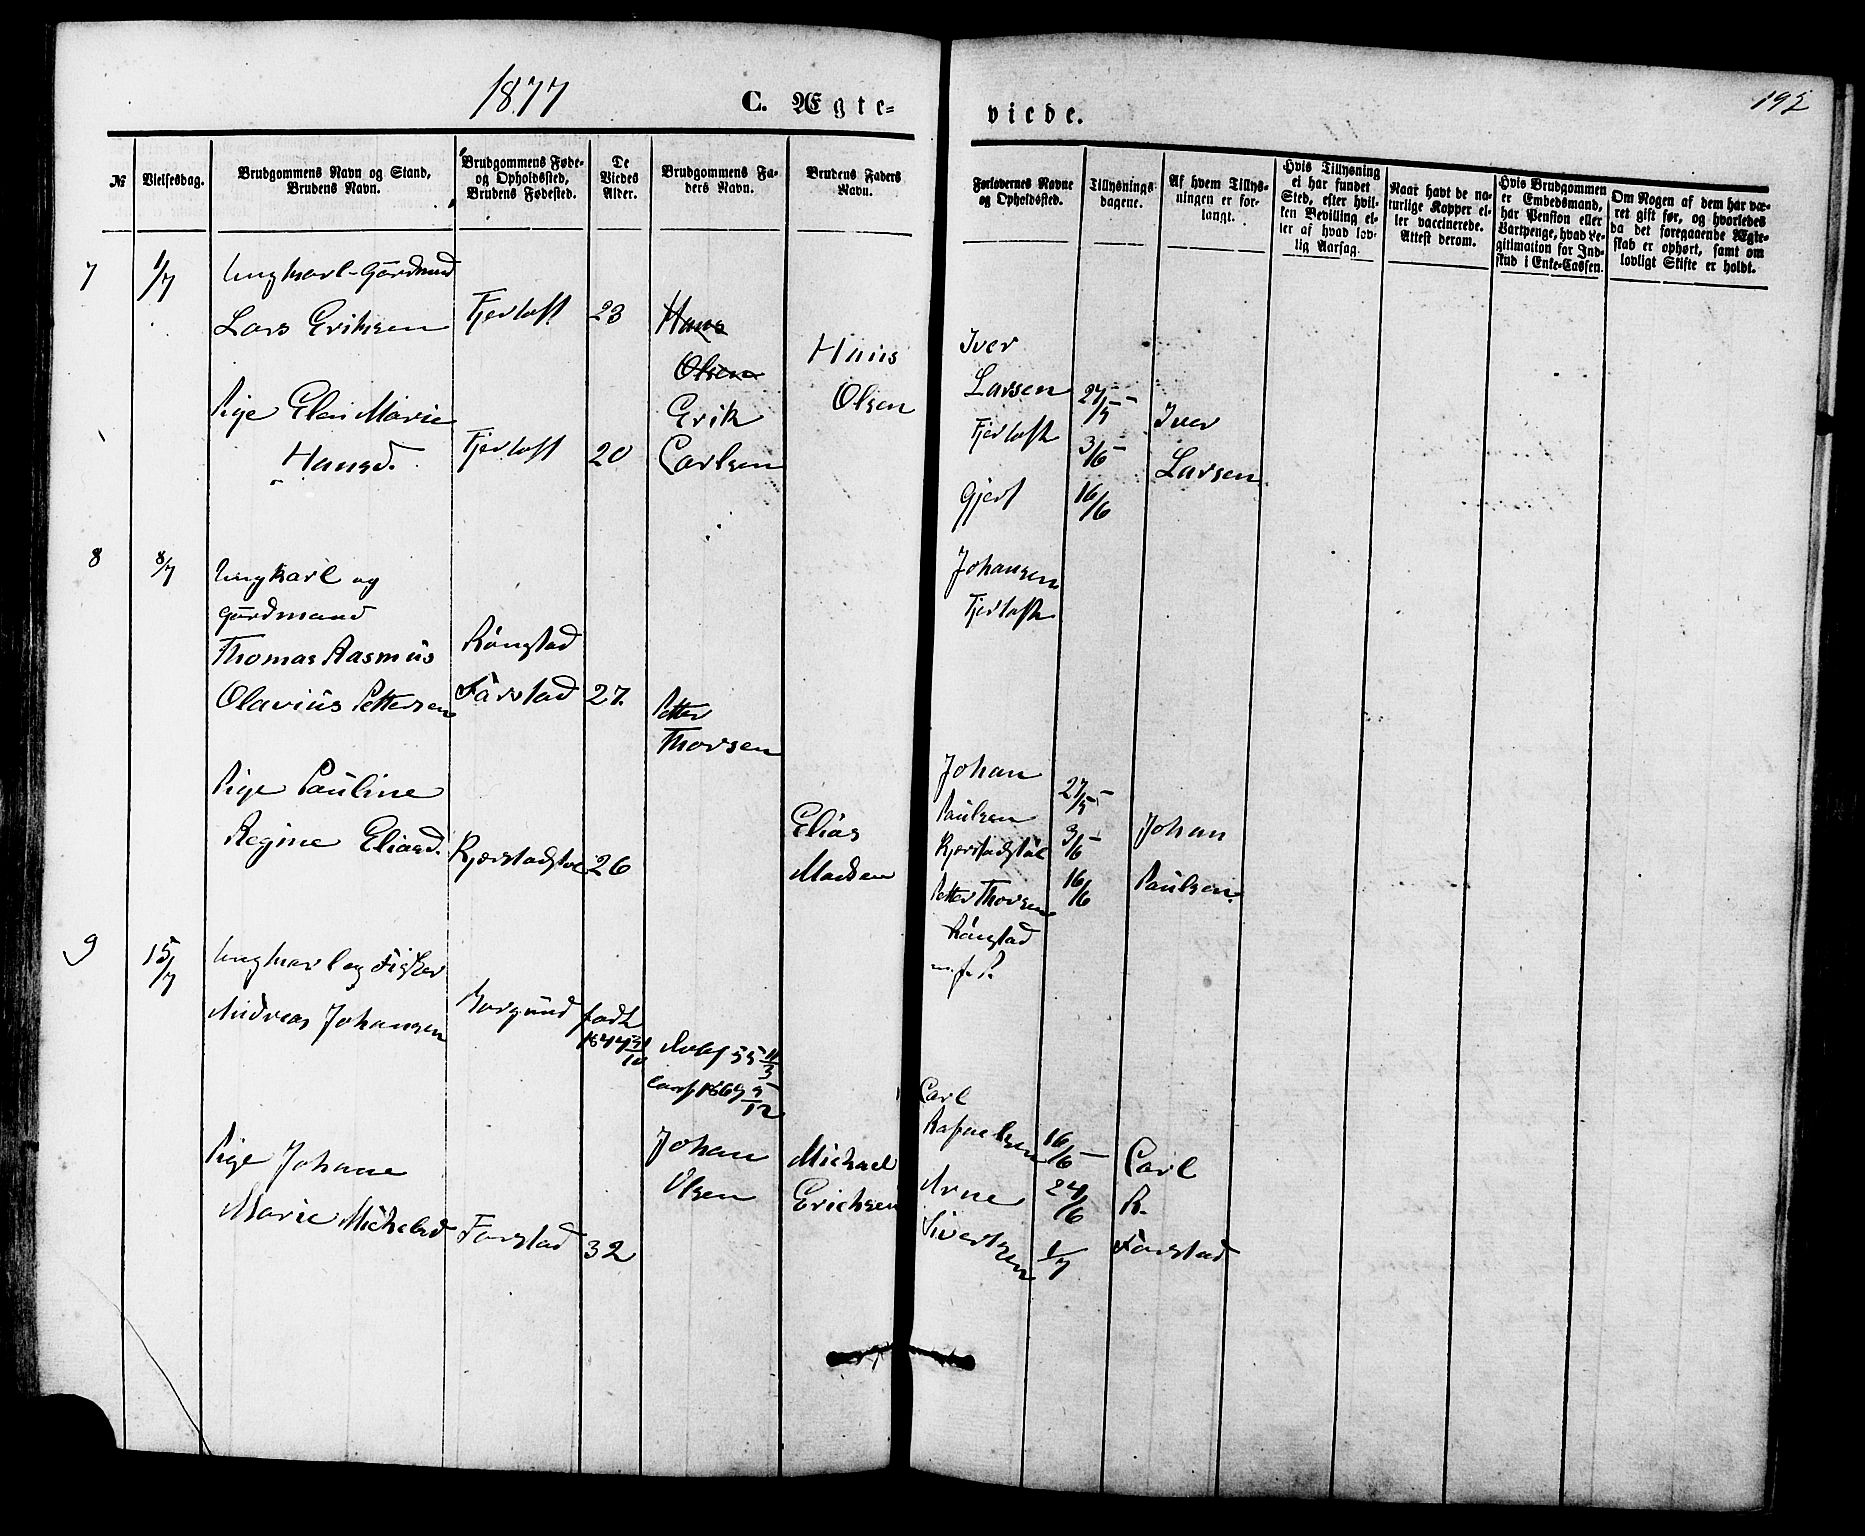 1877
C. Ægte=
viede.
192
№
Vielsesdag.
Brudgommens Navn og Stand,
Brudens Navn.
Brudgommens Føde-
og Opholdssted,
Brudens Fødested.
De
Viedes
Alder.
Brudgommens Fa-
ders Navn.
Brudens Faders
Navn.
Forlovernes Navne
og Opholdssted.
Tillysnings
dagene.
Af hvem Tillys-
ningen er for-
langt.
Hvis Tillysning
ei har fundet
Sted, efter hvil-
ken Bevilling el-
ler af hvad lov-
lig Aarsag.
Naar havt de na-
turlige Kopper el-
ler vaccinerede.
Attest derom.
Hvis Brudgommen
er Embedsmand,
har Pension eller
Vartpenge, hvad Le-
gitimation for Ind-
skud i Enke-Cassen.
Om Nogen af dem har væ-
ret gift før, og hvorledes
da det foregaaende Ægte-
skab er ophørt, samt om
lovligt Skifte er holdt.
7
1/7
Ungkarl-Gårdmd
Lars Eriksen
Fjertoft
23
Hans
Olsen
Erik
Carlsen
Hans
Olsen
Pige Elen Marie
Hansd.
Fjertoft
20
Iver
Larsen
Fjertoft
Gjert
Johansen
Fjertoft
27/5
3/6
16/6
Iver
Larsen
8
8/7
Ungkarl og
Gårdmand
Thomas Rasmus
Olavius Pettersen
Rönstad
Farstad
27.
Petter
Thorsen
Pige Pauline
Regine Eliasd.
Kjerstadstøl
26
Elias
Madsen
Johan
Paulsen
Kjerstadstöl
Petter Thorsen
Rönstad
27/5
3/6
16/6
Johan
Paulsen
9
15/7
Ungkarl og Fisker
Andreas Johansen
Borgund
født
1844 31/10
Johan
Olsen
Michael
Erichsen
Pige Johane
Marie Michelsd
Farstad
32
Carl
Rafaelsen
Arne
Sivertsen
16/6
24/6
1/7
Carl
R.
Farstad